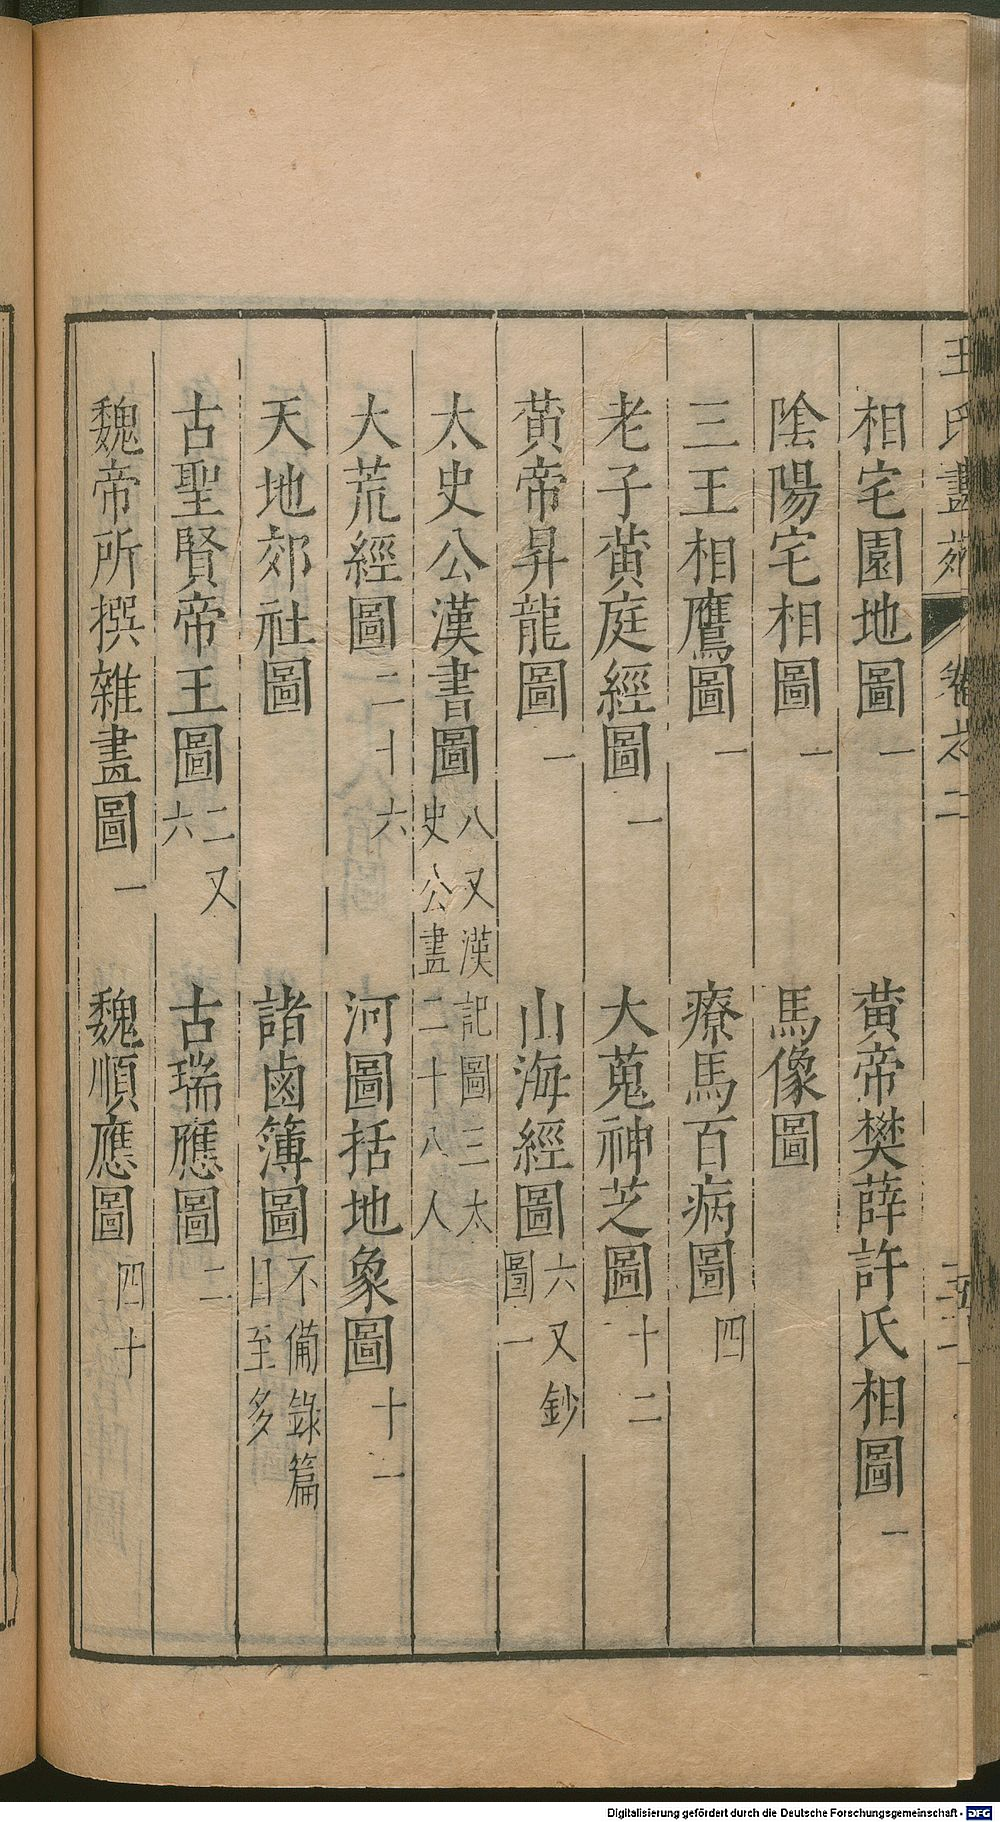 王氏畫苑 卷之二
相宅園地圖一 黃帝樊薛許氏相圖一
陰陽宅相圖一 馬像圖
三王相鷹圖一 療馬百病圖四
老子黃庭經圖一 大蒐神芝圖十二
黃帝昇龍圖一 山海經圖六又鈔圖一
太史公漢書圖八又漢記圖三太史公畫二十八人
大荒經圖二十六 河圖括地象圖十一
天地郊社圖 諸鹵簿圖不備錄篇目至多
古聖賢帝王圖二又六 古瑞應圖二
魏帝所撰雜畫圖一 魏順應圖四十
Digitalisierung gefördert durch die Deutsche Forschungsgemeinschaft - DFG